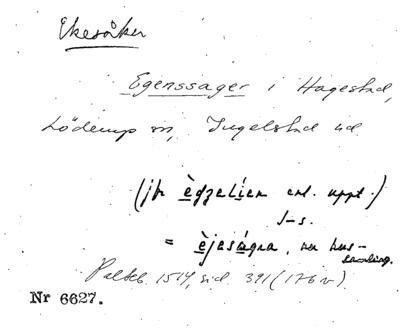 Ekesåker
Egenssager i Hagestad,
Löderup sn, Ingelstad hd
(jfr èdzelien enl. uppt.)
J-s.
= èjeságra, nu hus-
samling.
Palteb. 1514, sid. 391 (176 v)
Nr 6627.